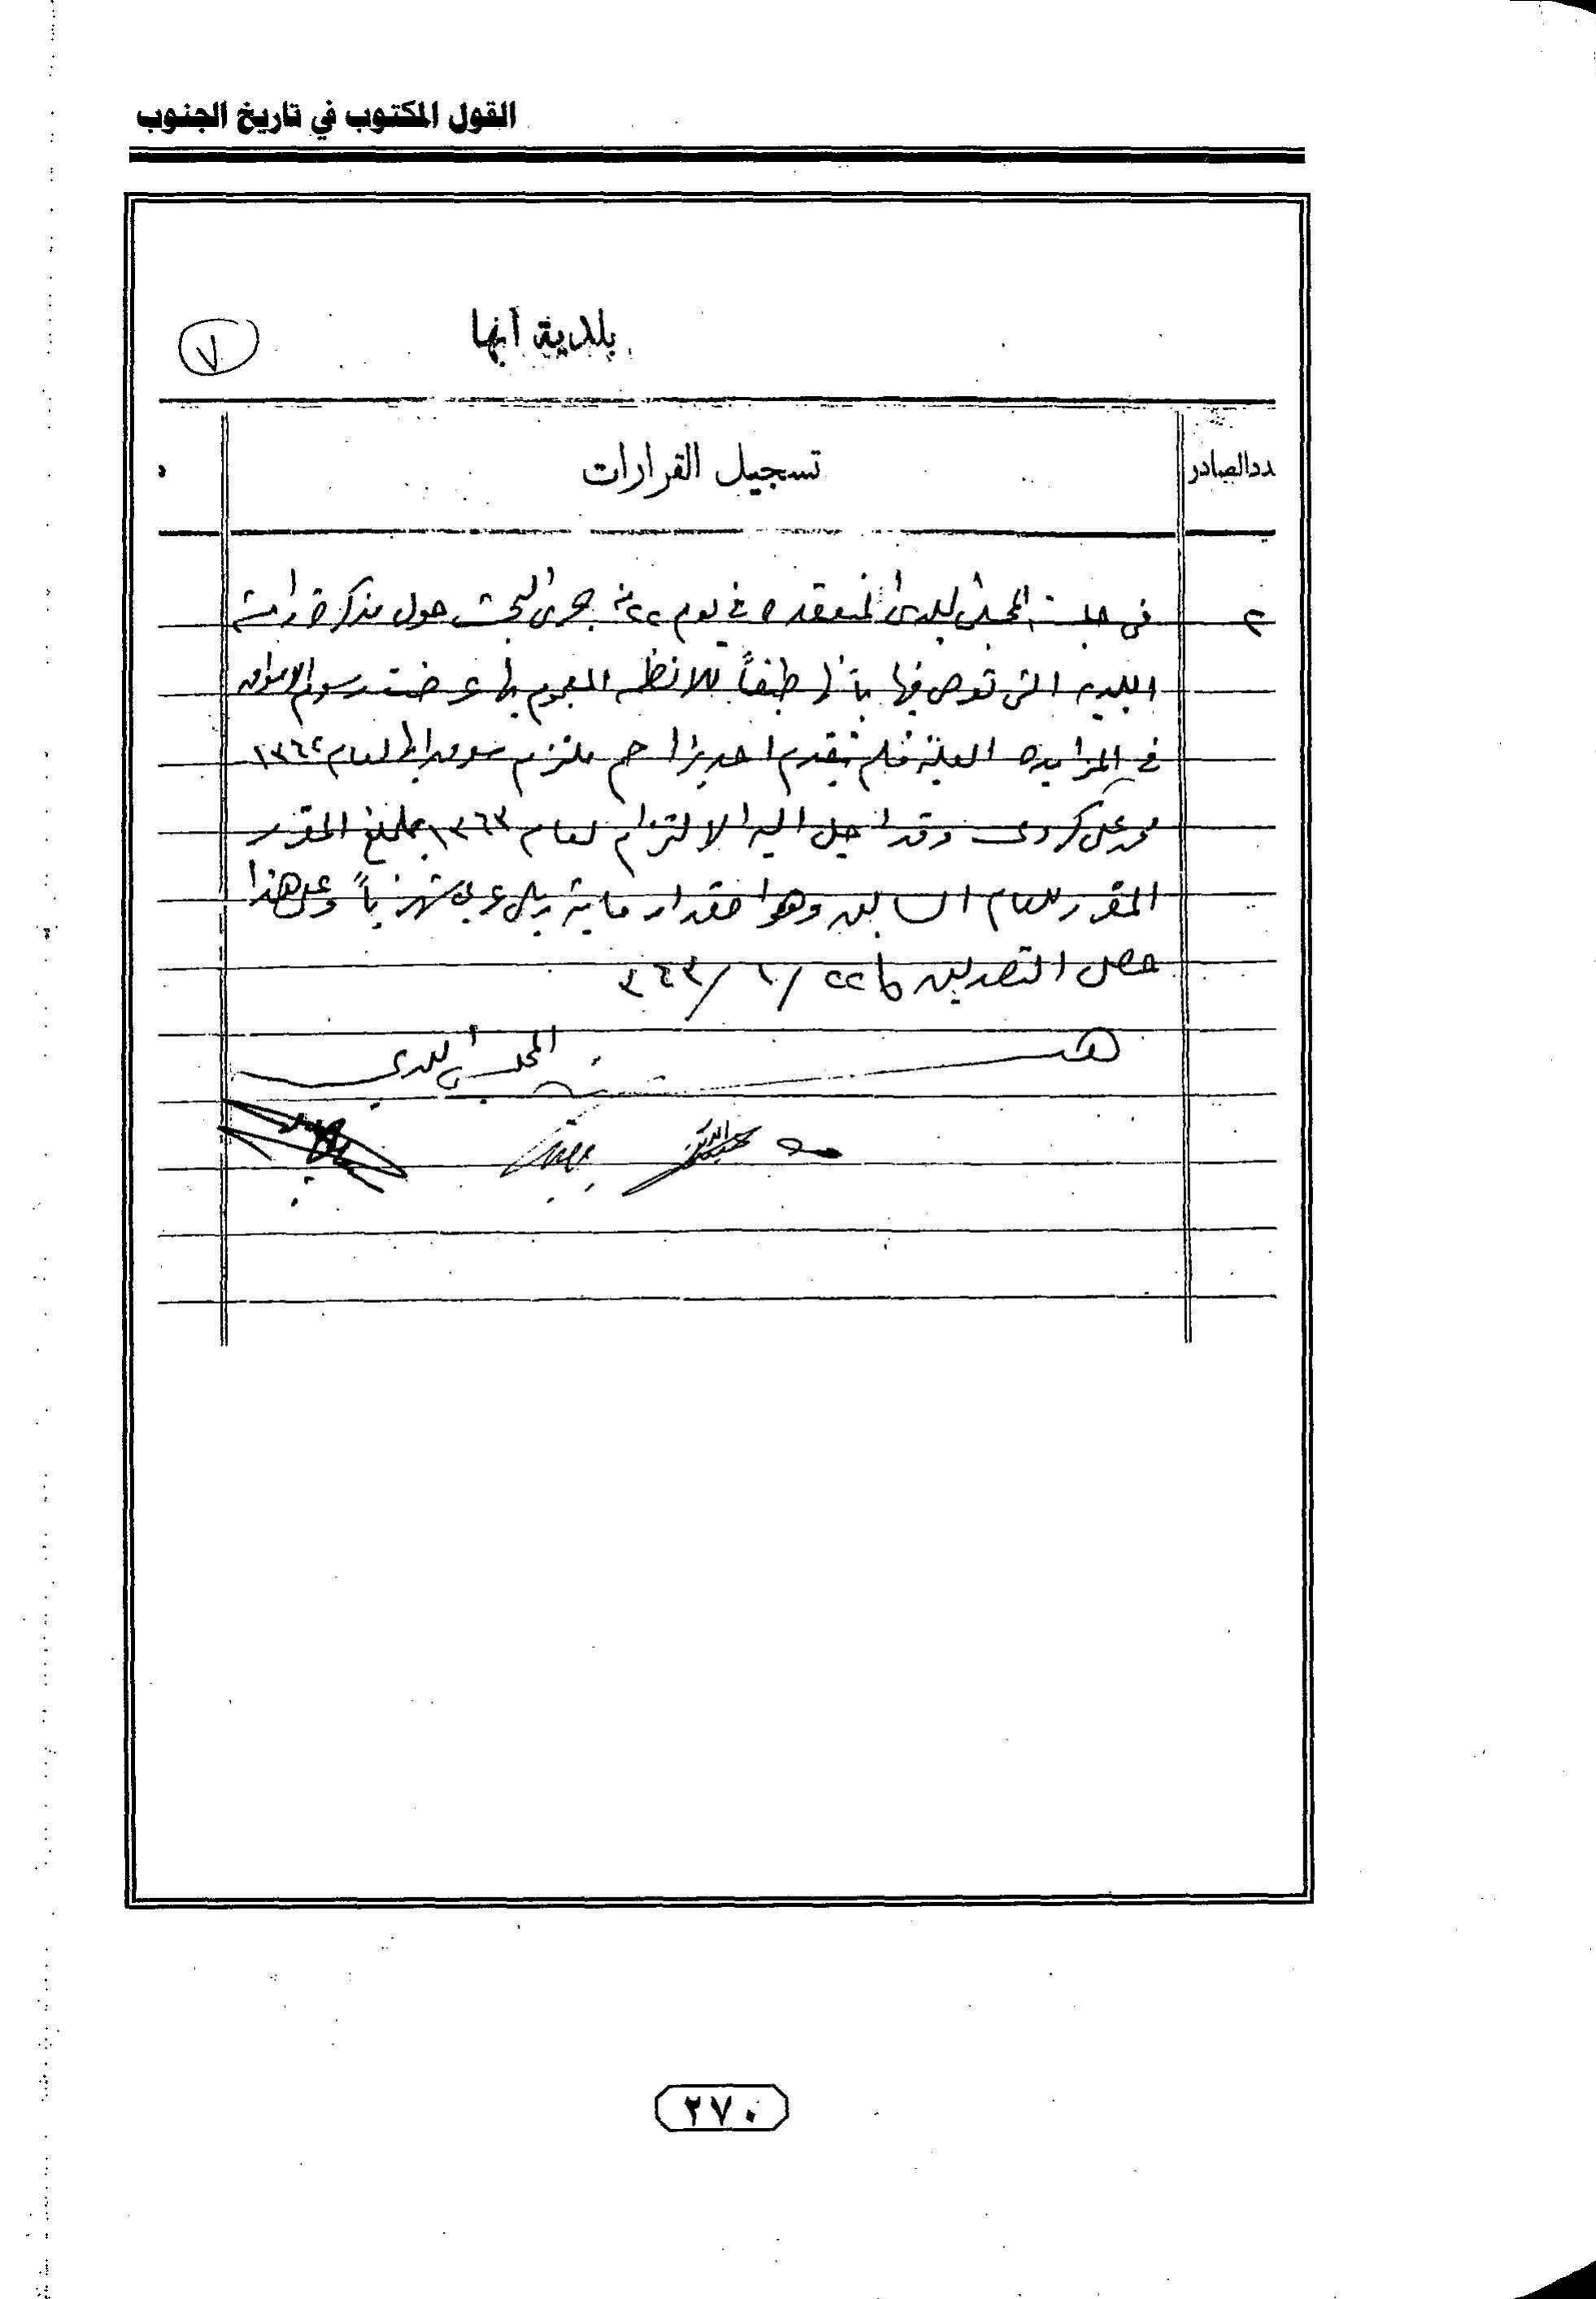 القول المكتوب في تاريخ الجنوب
بلدية أبها
٧
ددالصادر
تسجيل القرارات
٢
في جلسة المجلس البلدي المنعقده في يوم ٢٢ منه جرى البحث حول مذكرة رئاسة
البلديه التي توصي فيها بأنها طبقاً للانظمه المعموم بها عرضت رسوم الاسواق
في المزايده العلنية فلم يتقدم احد يزاحم ملتزم سوق ابها لعام ١٣٦٢
محمد علي كردي وقد احيل اليه الالتزام لعام ١٣٦٣ بمبلغ المقرر
المقرر للعام السابق وهوا مقدار ماية ريال عربي شهرياً وعلى هذا
حصل التصديق ٢٢/ ١/ ٣٦٣
المجلس البلدي
٢٧٠